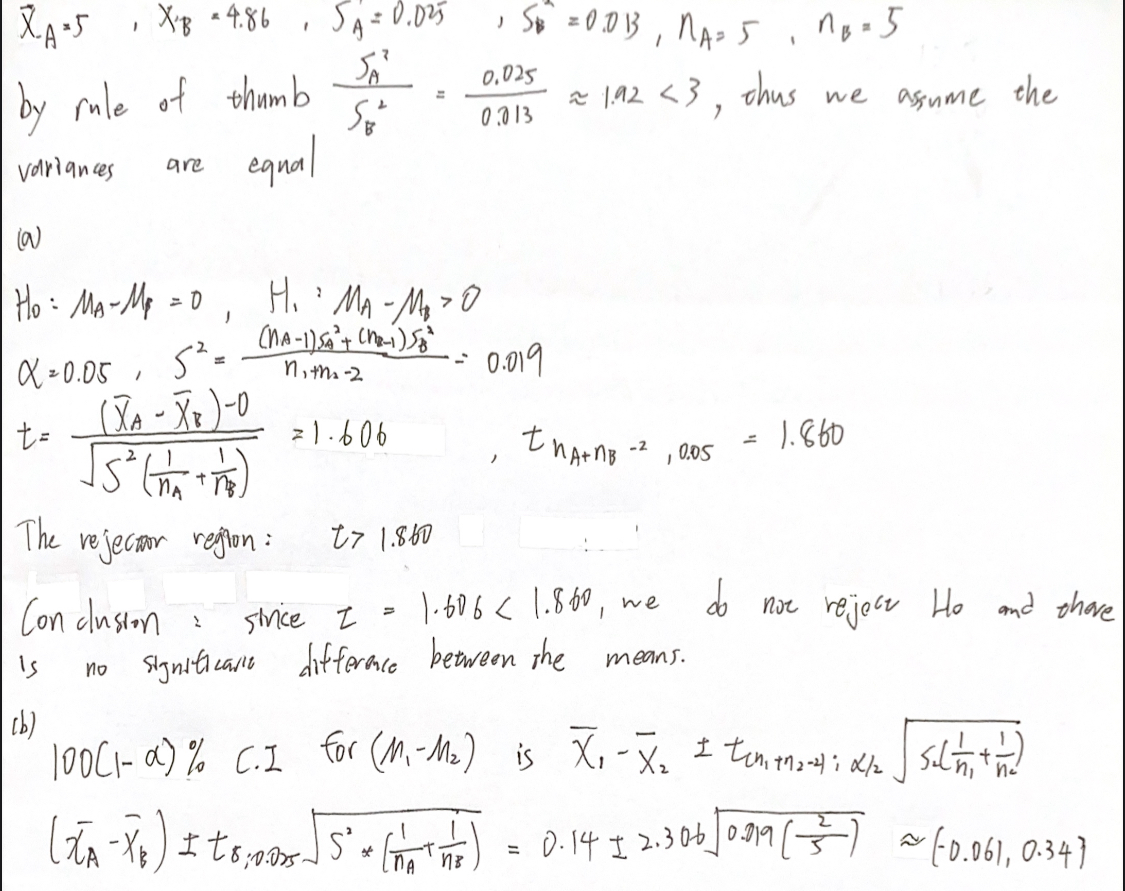 X̄_A = 5 , X̄_B = 4.86 , S_A² = 0.025 , S_B² = 0.013 , n_A = 5 , n_B = 5
by rule of thumb S_A²/S_B² = 0.025/0.013 ≈ 1.92 < 3 , thus we assume the
variances are equal
(a)
H₀ : M_A - M_B = 0 , H₁ : M_A - M_B > 0
α = 0.05 , S² = ((n_A-1)S_A² + (n_B-1)S_B²)/(n₁+n₂-2) = 0.019
t = ((X̄_A - X̄_B) - 0)/√(S²(1/n_A + 1/n_B)) = 1.606 , t n_A+n_B -2 , 0.05 = 1.860
The rejection region : t > 1.860
Conclusion : since t = 1.606 < 1.860, we do not reject H₀ and there
is no significant difference between the means.
(b)
100(1-α)% C.I for (M₁-M₂) is X̄₁ - X̄₂ ± t(n₁+n₂-2) ; α/2 √(S²(1/n₁ + 1/n₂))
(X̄_A - X̄_B) ± t₈;0.025 √(S² * (1/n_A + 1/n_B)) = 0.14 ± 2.306 √(0.019(2/5)) ≈ (-0.061, 0.341)